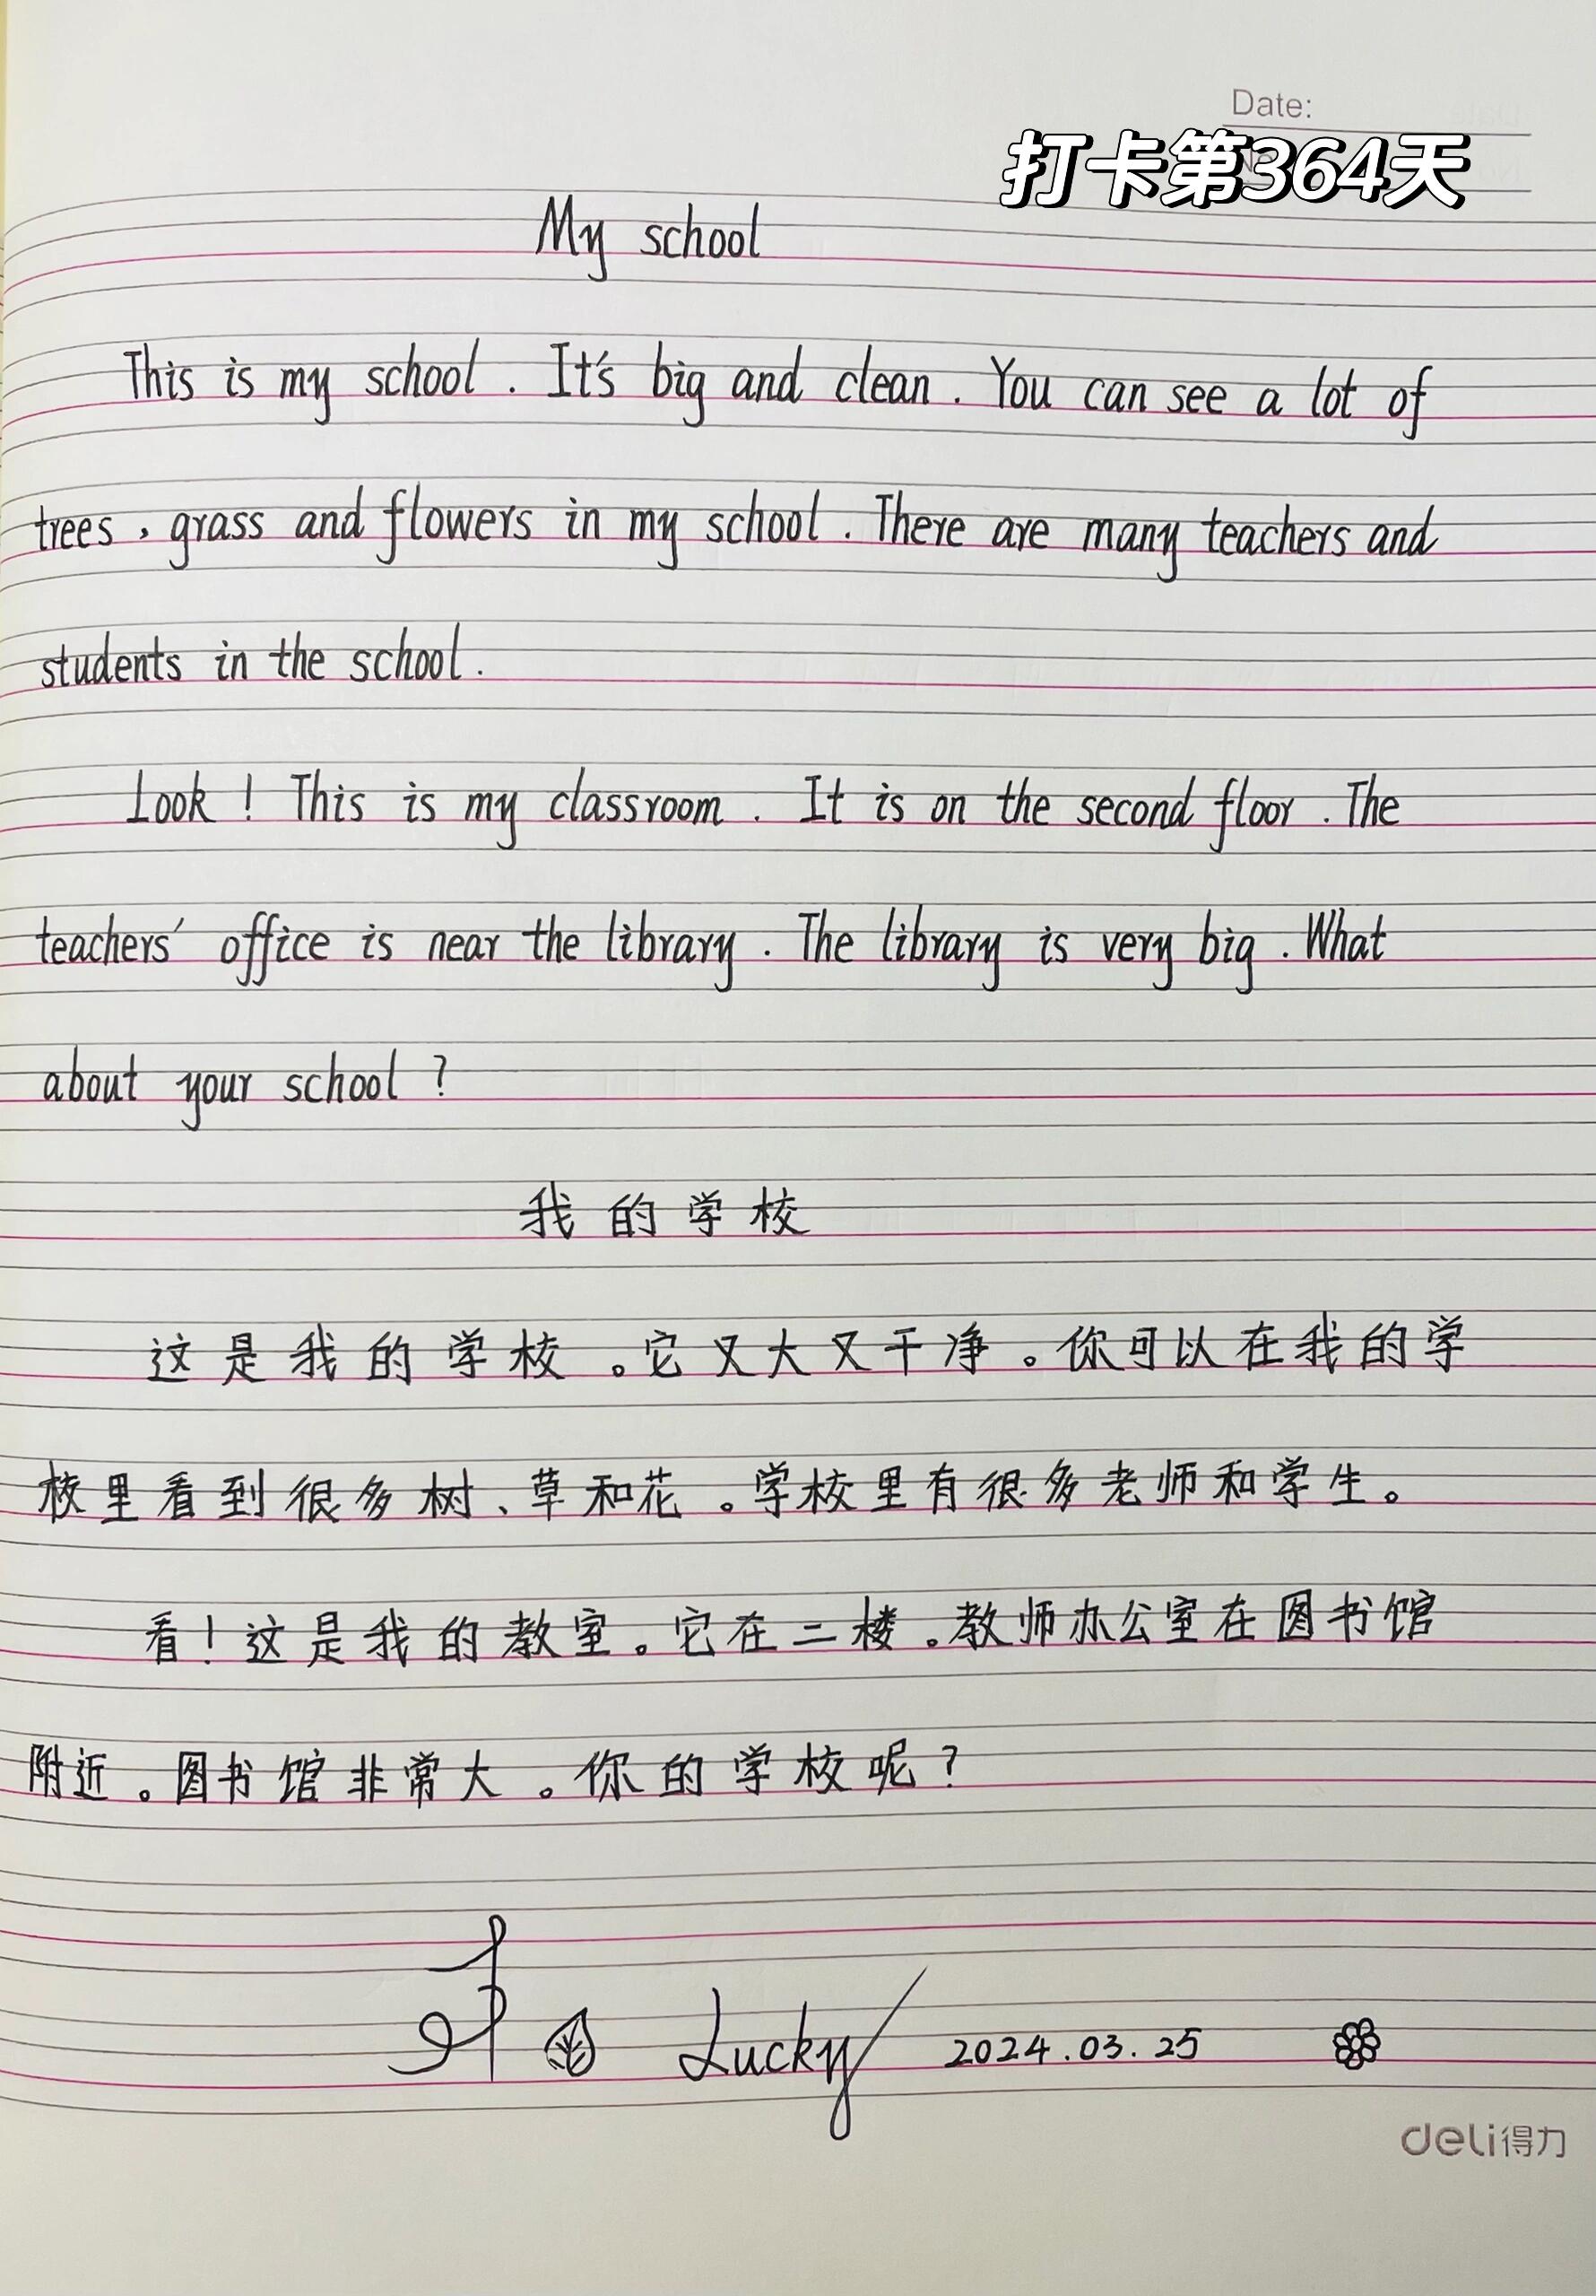 Date:
打卡第364天
My school
This is my school. It's big and clean. You can see a lot of
trees, grass and flowers in my school. There are many teachers and
students in the school.
Look! This is my classroom. It is on the second floor. The
teachers' office is near the library. The library is very big. What
about your school?
我的学校
这是我的学校。它又大又干净。你可以在我的学
校里看到很多树、草和花。学校里有很多老师和学生。
看!这是我的教室。它在二楼。教师办公室在图书馆
附近。图书馆非常大。你的学校呢?
Lucky 2024.03.25
deli得力